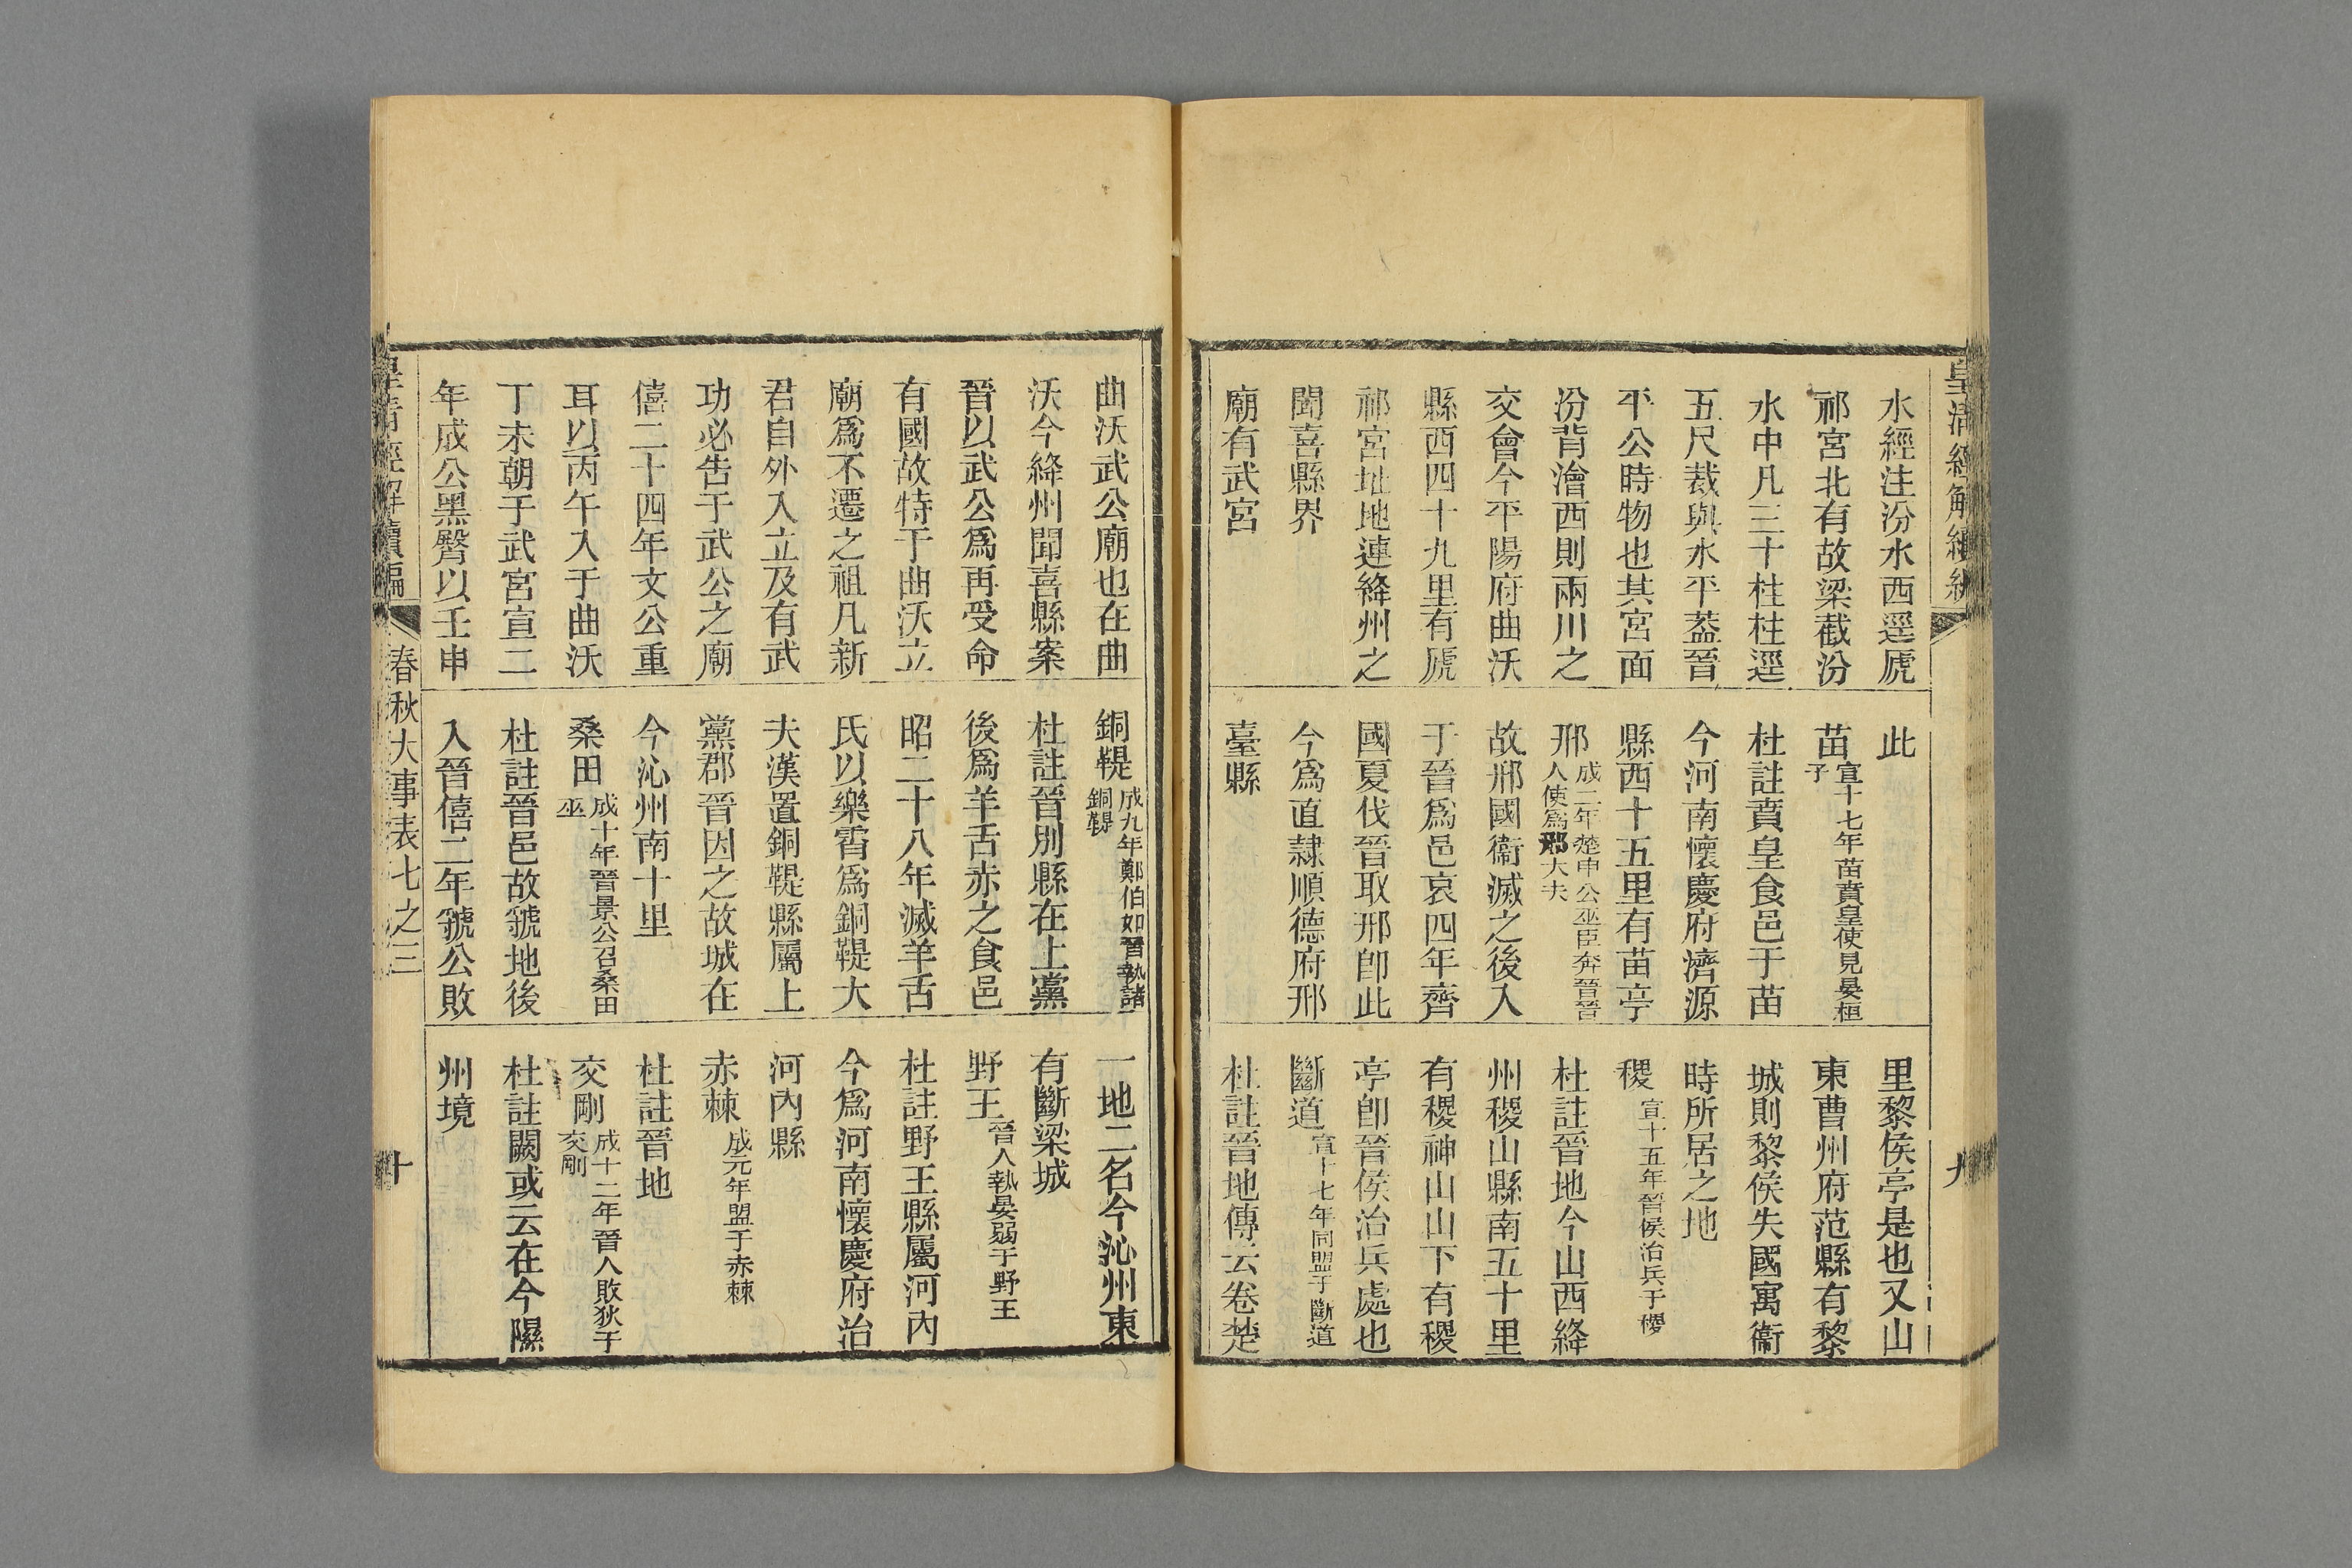 皇清經解續編
水經注汾水西逕虒
祁宮北有故梁截汾
水中凡三十柱柱逕
五尺裁與水平葢晉
平公時物也其宮面
汾背澮西則兩川之
交會今平陽府曲沃
縣西四十九里有虒
祁宮址地連絳州之
聞喜縣界
廟有武宮
此
苗宣十七年苗賁皇使見晏桓
子
杜註賁皇食邑于苗
今河南懷慶府濟源
縣西十五里有苗亭
邢成二年楚申公巫臣奔晉晉
人使爲邢大夫
故邢國衞滅之後入
于晉爲邑哀四年齊
國夏伐晉取邢卽此
今爲直隷順德府邢
臺縣
里黎侯亭是也又山
東曹州府范縣有黎
城則黎侯失國寓衞
時所居之地
稷宣十五年晉侯治兵于稷
杜註晉地今山西絳
州稷山縣南五十里
有稷神山山下有稷
亭卽晉侯治兵處也
斷道宣十七年同盟于斷道
杜註晉地傳云卷楚
九
曲沃武公廟也在曲
沃今絳州聞喜縣案
晉以武公爲再受命
有國故特于曲沃立
廟爲不遷之祖凡新
君自外入立及有武
功必告于武公之廟
僖二十四年文公重
耳以丙午入于曲沃
丁未朝于武宮宣二
年成公黑臀以壬申
銅鞮成九年鄭伯如晉執諸
銅鞮
杜註晉別縣在上黨
後爲羊舌赤之食邑
昭二十八年滅羊舌
氏以樂霄爲銅鞮大
夫漢置銅鞮縣屬上
黨郡晉因之故城在
今沁州南十里
桑田成十年晉景公召桑田
巫
杜註晉邑故虢地後
入晉僖二年虢公敗
一地二名今沁州東
有斷梁城
野王晉人執晏弱于野王
杜註野王縣屬河內
今爲河南懷慶府治
河內縣
赤棘成元年盟于赤棘
杜註晉地
交剛成十二年晉人敗狄于
交剛
杜註闕或云在今隰
州境
皇清經解續編
春秋大事表七之三
十